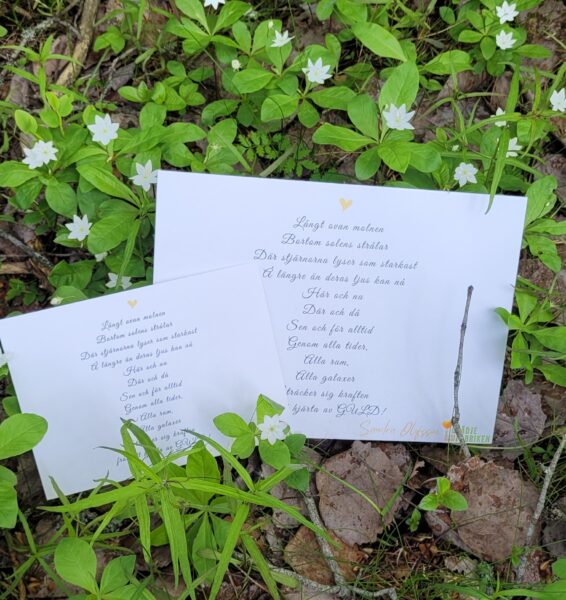 Långt ovan molnen
Bortom solens strålar
Där stjärnorna lyser som starkast
Å längre än deras ljus kan nå
Här och nu
Där och då
Sen och för alltid
Genom alla tider,
Alla rum,
Alla galaxer
sträcker sig kraften
hjärta av GULD!
Långt ovan molnen
Bortom solens strålar
Där stjärnorna lyser som starkast
Å längre än deras ljus kan nå
Här och nu
Där och då
Sen och för alltid
Genom alla tider,
Alla rum,
Alla galaxer
sig kraften
av GULD